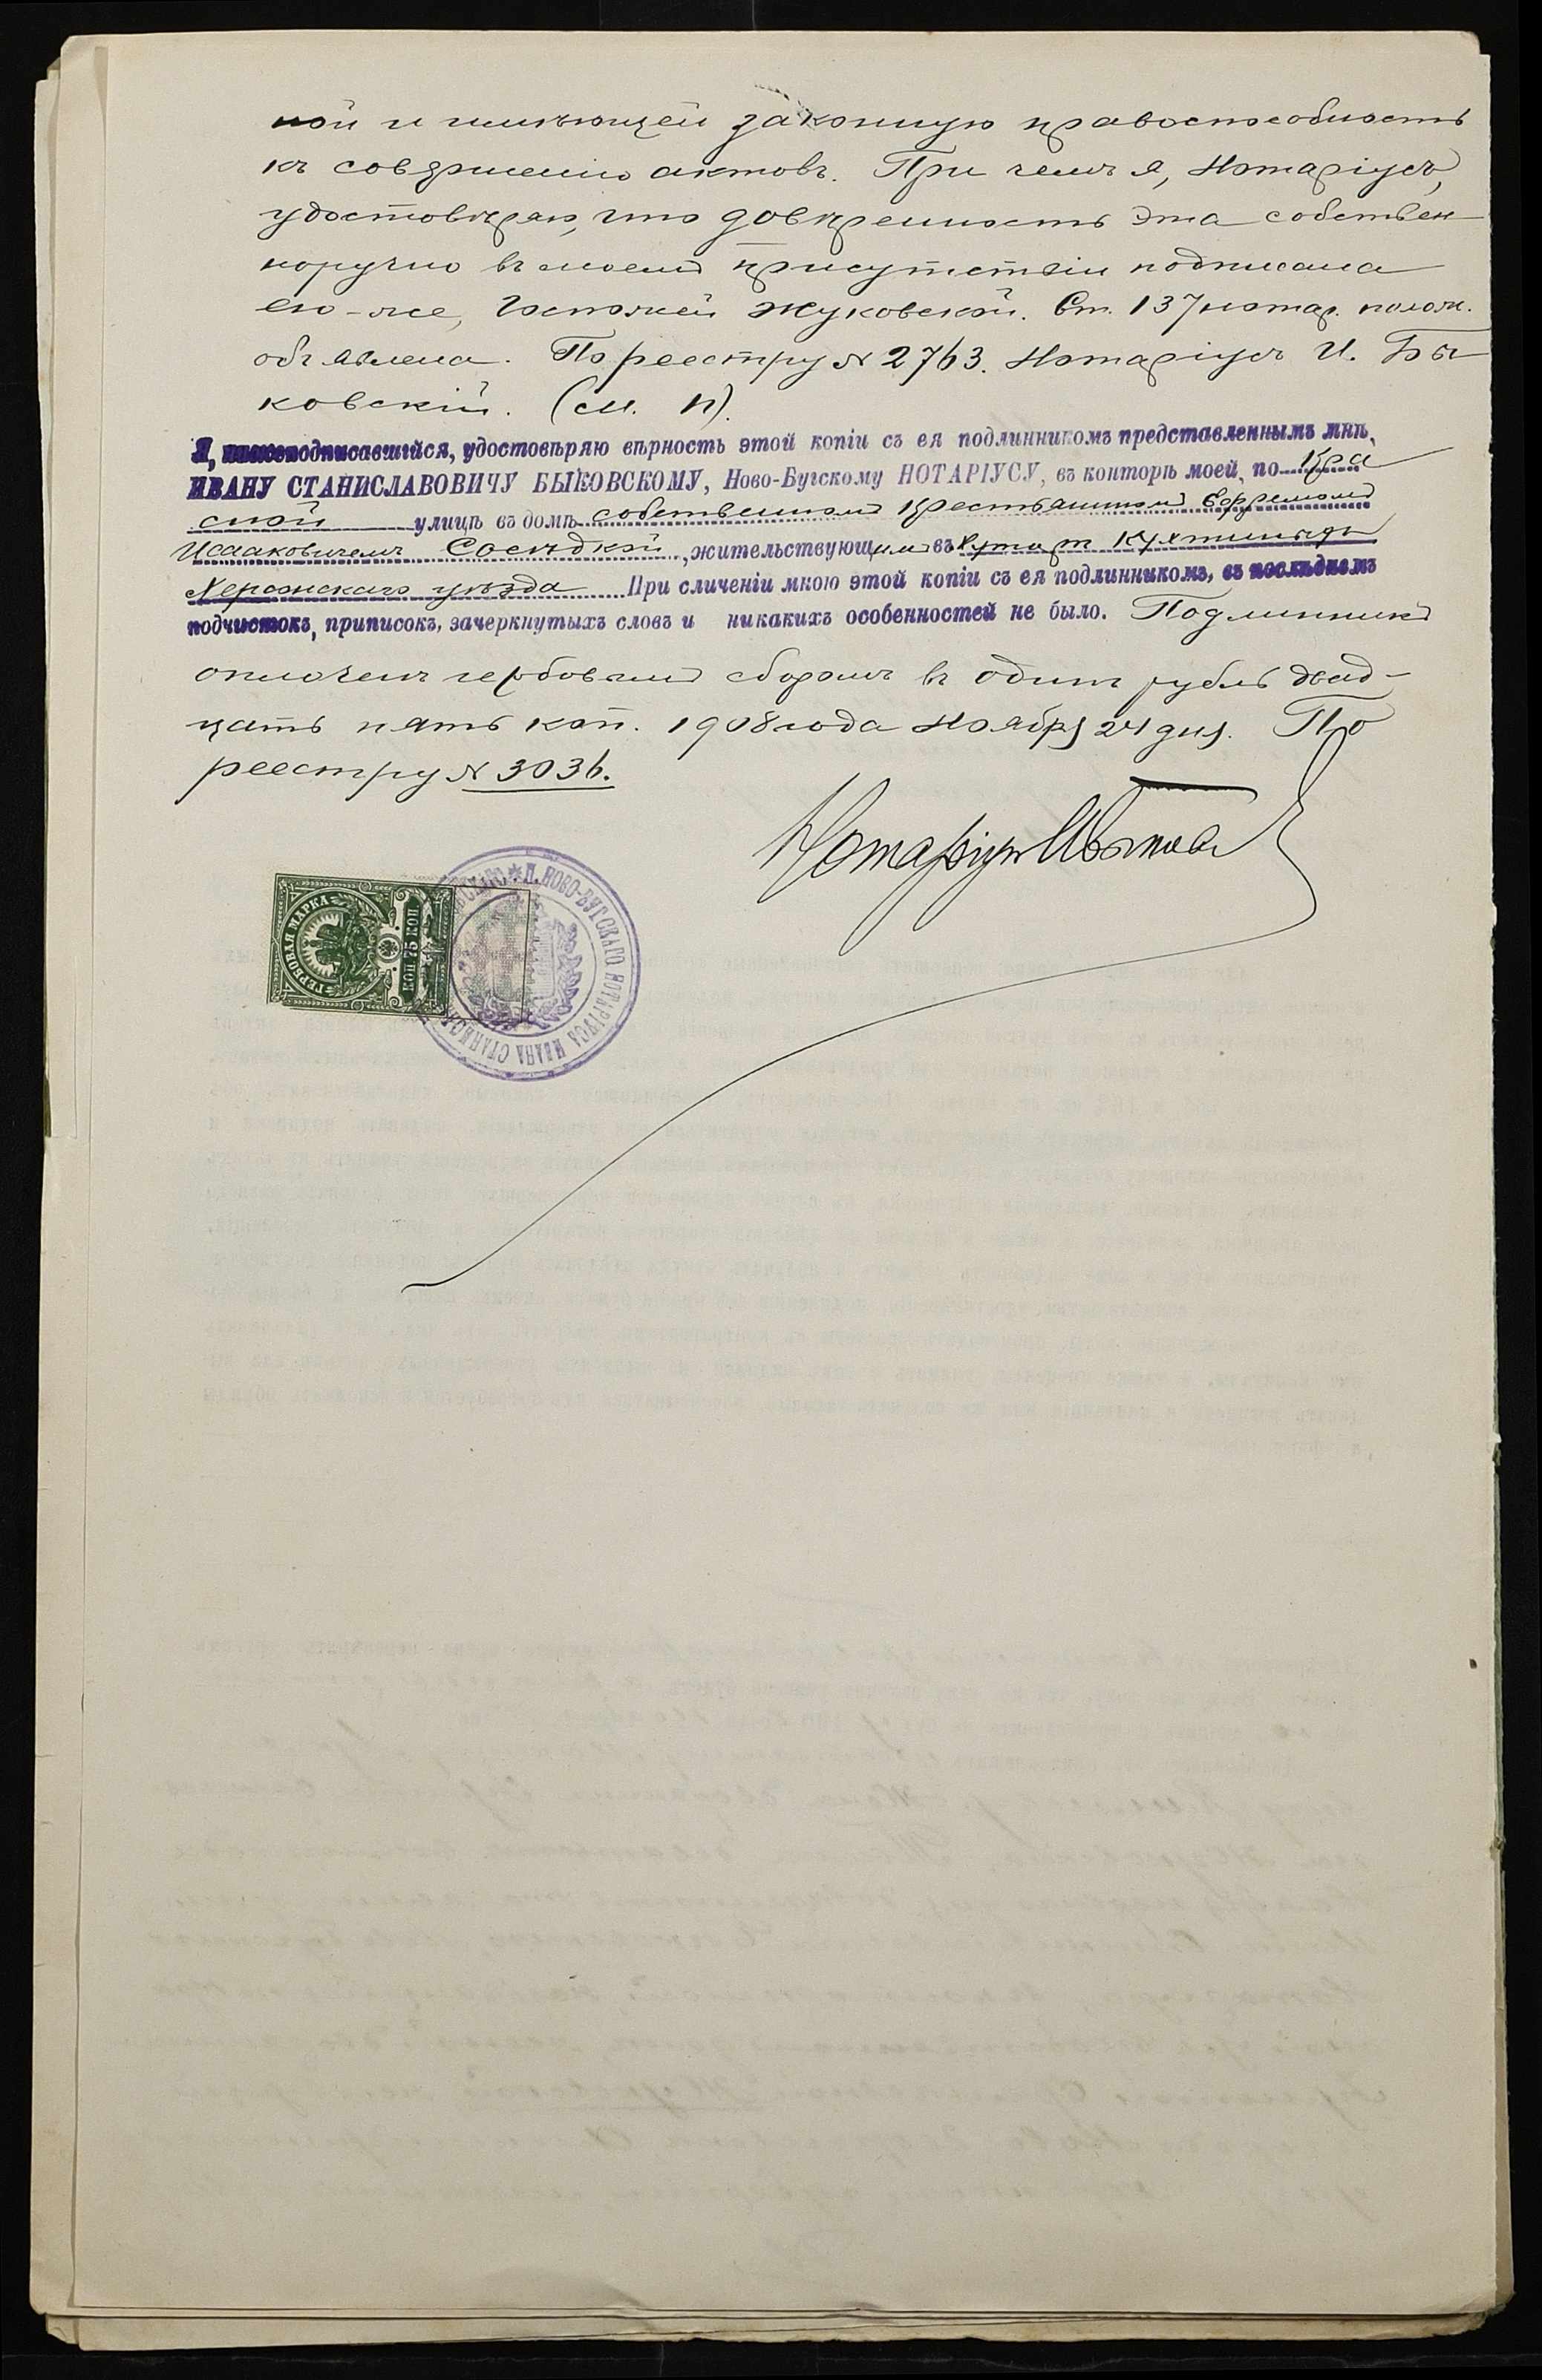 ной и имѣющей законную правоспособность
къ совершенію актовъ. При чемъ я, Нотаріусъ,
удостовѣряю, что довѣренность эта собствен-
норучно въ моемъ присутствіи подписана
ею-же, Госпожей Жуковской. Ст. 137 нотар. полож.
объявлена. По реестру № 2763. Нотаріусъ И. Бы-
ковскій. (М. П.).
Я, нижеподписавшійся, удостовѣряю вѣрность этой копіи съ ея подлинникомъ представленнымъ мнѣ,
ИВАНУ СТАНИСЛАВОВИЧУ БЫКОВСКОМУ, Ново-Бугскому НОТАРІУСУ, въ конторѣ моей, по Кра
сной улицѣ въ домѣ собственномъ крестьяниномъ Ефремомъ
Исааковичемъ Сосѣдкой, жительствующимъ въ
Херсонскаго уѣзда При сличеніи мною этой копіи съ ея подлинникомъ, въ послѣднемъ
подчистокъ, приписокъ, зачеркнутыхъ словъ и никакихъ особенностей не было. Подлинникъ
оплоченъ гербовымъ сборомъ въ одинъ рубль двад-
цать пять коп. 1908 года Ноября 24 дня. По
реестру № 3036.
Нотаріусъ
ГЕРБОВАЯ МАРКА
КОП 75 КОП
П. НОВО-БУГСКАГО НОТАРІУСА ИВАНА СТАНИСЛ